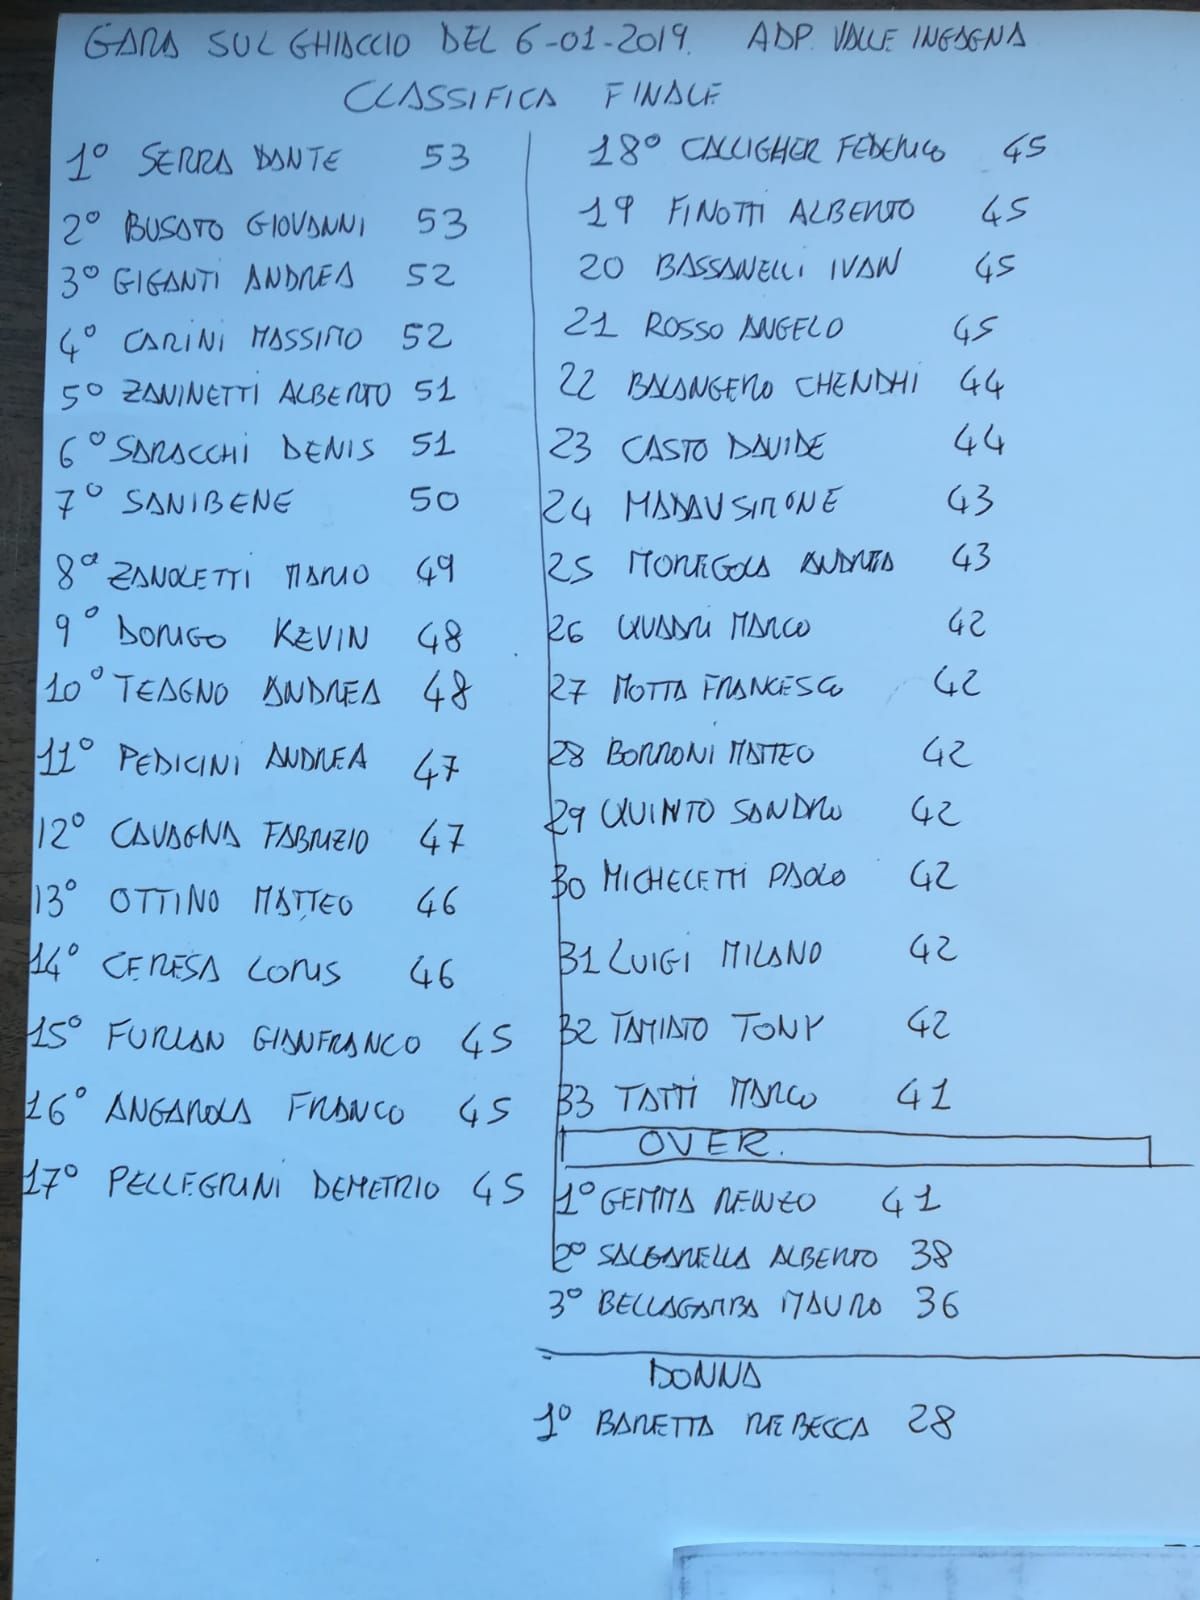 GARA SUL GHIACCIO DEL 6-01-2019. ADP. VALLE INGAGNA
CLASSIFICA FINALE
1° SERRA DANTE 53
2° BUSATO GIOVANNI 53
3° GIGANTI ANDREA 52
4° CARINI MASSIMO 52
5° ZANINETTI ALBERTO 51
6° SARACCHI DENIS 51
7° SANIBENE 50
8ª ZANOLETTI MARIO 49
9° DORIGO KEVIN 48
10° TEAGNO ANDREA 48
11° PEDICINI ANDREA 47
12° CAVAGNA FABRIZIO 47
13° OTTINO MATTEO 46
14° CERESA LORIS 46
15° FURLAN GIANFRANCO 45
16° ANGAROLA FRANCO 45
17° PELLEGRINI DEMETRIO 45
18° CALLIGHER FEDERICO 45
19 FINOTTI ALBERTO 45
20 BASSANELLI IVAN 45
21 ROSSO ANGELO 45
22 BALANGERO CHENDHI 44
23 CASTO DAVIDE 44
24 MADAU SIMONE 43
25 ANDREA 43
26 QUADRI MARCO 42
27 MOTTA FRANCESCO 42
28 BORRONI MATTEO 42
29 QUINTO SANDRO 42
30 MICHELETTI PAOLO 42
31 LUIGI MILANO 42
32 TAMIATO TONY 42
33 TATTI MARCO 41
OVER.
1° GEMMA RENZO 41
2° SALGARELLA ALBERTO 38
3° BELLAGAMBA MAURO 36
DONNA
1° BARETTA REBECCA 28